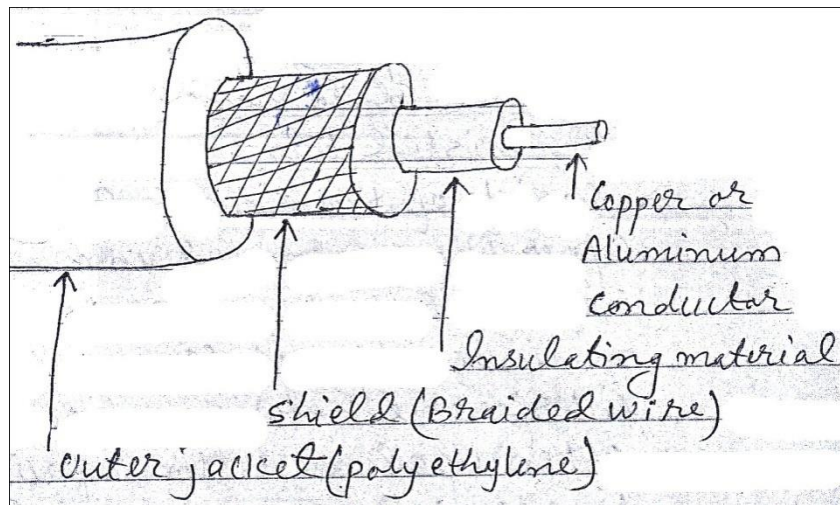 Copper or
Aluminum
conductor
Insulating material
Shield (Braided wire)
Outer jacket (polyethylene)